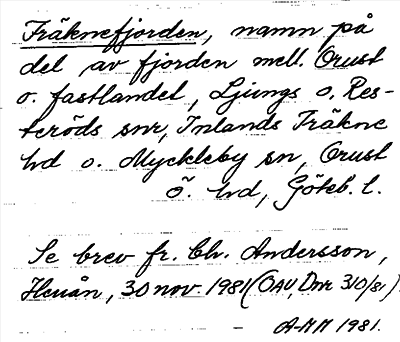 Fräknefjorden, namn på
del av fjorden mell. Orust
o. fastlandet, Ljungs o. Res-
teröds snr, Inlands Fräkne
hd o. Myckleby sn, Orust
Ö. hd, Göteb. l.
Se brev fr. Ch. Andersson,
Henån, 30 nov. 1981 (OAU, Dnr 310/81).
A-MH 1981.